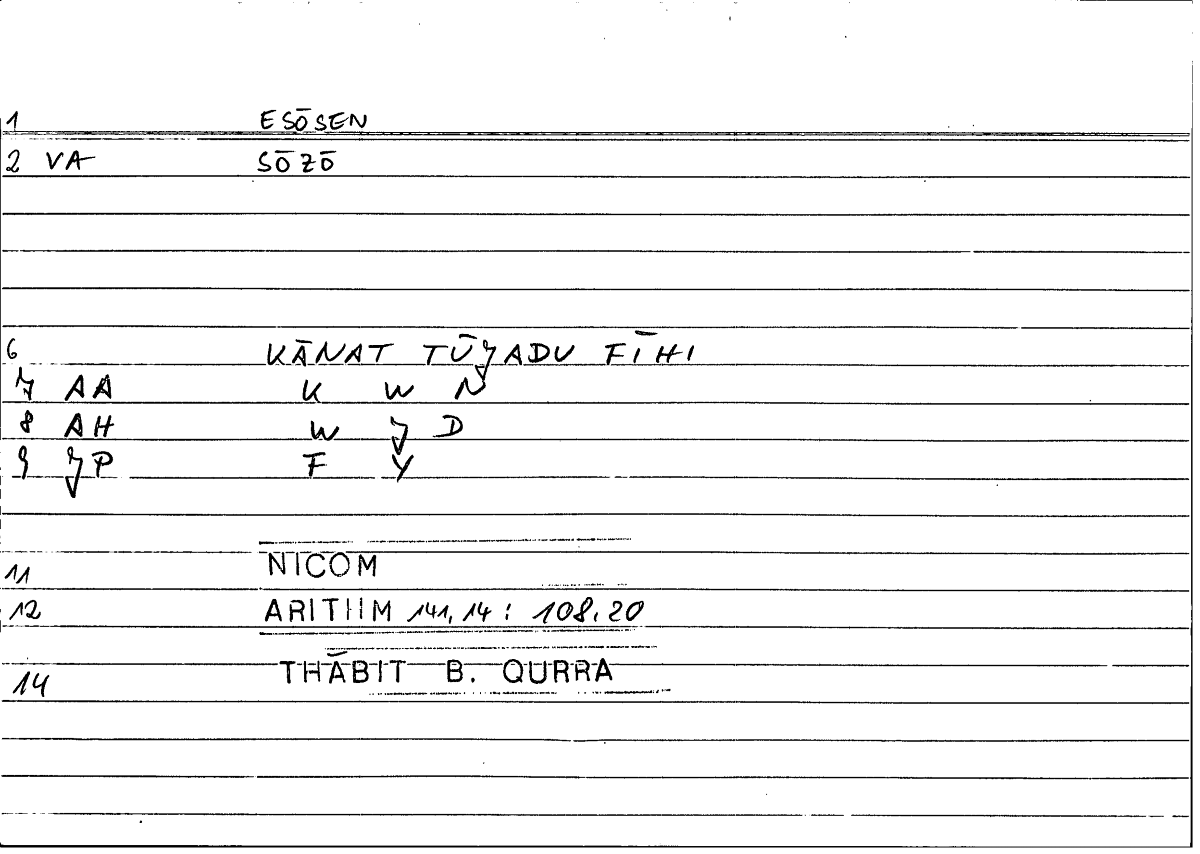 1 ESŌSEN
2 VA SŌZŌ
6 KĀNAT TŪJADU FĪHI
7 AA K W N
8 AH W J D
9 JP F Y
11 NICOM
12 ARITHM 141,14 : 108,20
14 THĀBIT B. QURRA